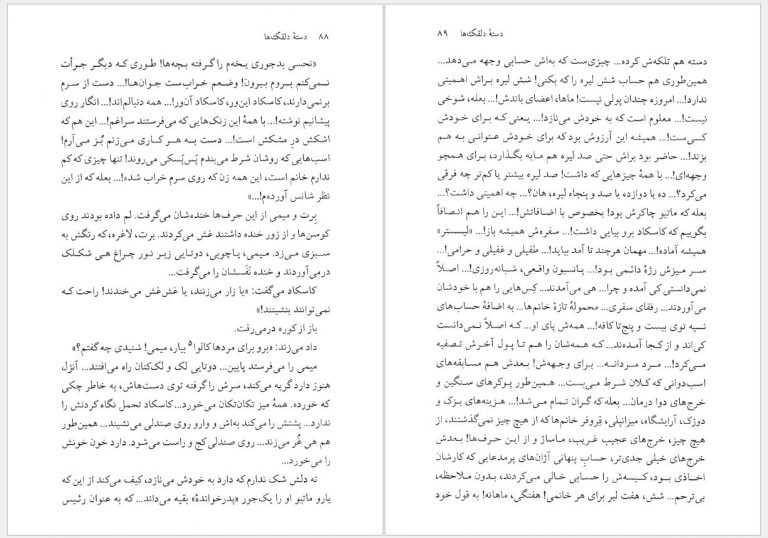 ۸۸ دستهٔ دلقک‌ها
«نحسی بدجوری یخه‌م را گرفته بچه‌ها! طوری که دیگر جرأت
نمی‌کنم بروم بیرون! وضعم خراب‌ست جوان‌ها!... دست از سرم
برنمی‌دارند، کاسکاد این‌ور، کاسکاد آن‌ور!... همه دنبالم‌اند!... انگار روی
پیشانیم نوشته!... با همهٔ این زنک‌هایی که می‌فرستند سراغم!... این هم که
اشکش درِ مشکش است!... دست به هر کاری می‌زنم بُز می‌آرم!
اسب‌هایی که روشان شرط می‌بندم پَس‌پَسکی می‌روند! تنها چیزی که کم
ندارم خانم است، این همه زن که روی سرم خراب شده!... بعله که از این
نظر شانس آورده‌م!...»
بِرت و میمی از این حرف‌ها خنده‌شان می‌گرفت. لم داده بودند روی
کوسن‌ها و از زور خنده داشتند غش می‌کردند. برت، لاغره، که رنگش به
سبزی می‌زد. میمی، پاچوبی، دوتایی زیر نور چراغ هی شکلک
درمی‌آوردند و خنده نَفَسشان را می‌گرفت...
کاسکاد می‌گفت: «یا زار می‌زنند، یا غش‌غش می‌خندند! راحت که
نمی‌توانند بنشینند!»
باز از کوره درمی‌رفت.
داد می‌زند: «برو برای مردها کالوا⁵ بیار، میمی! شنیدی چه گفتم؟»
میمی را می‌فرستد پایین... دوتایی لک و لک‌کنان راه می‌افتند... آنژل
هنوز دارد گریه می‌کند، سرش را گرفته توی دست‌هاش، به خاطر چکی
که خورده. همهٔ میز تکان‌تکان می‌خورد...کاسکاد تحمل نگاه کردنش را
ندارد... پشتش را می‌کند به‌اش و وارو روی صندلی می‌نشیند... همین‌طور
هم هی غُر می‌زند... روی صندلی کج و راست می‌شود. دارد خون خونش
را می‌خورد...
ته دلش شک ندارم که دارد به خودش می‌نازد، کیف می‌کند از این که
یارو ماتیو او را یک‌جور «پدرخواندهٔ» بقیه می‌داند... که به عنوان رئیس
دستهٔ دلقک‌ها ۸۹
دسته هم تلکه‌ش کرده... چیزی‌ست که به‌اش حسابی وجهه می‌دهد...
همین‌طوری هم حساب شش لیره را که بکنی! شش لیره براش اهمیتی
ندارد!... امروزه چندان پولی نیست! ماها، اعضای باندش!... بعله، شوخی
نیست!... معلوم است که به خودش می‌نازد!... یعنی که برای خودش
کسی‌ست!... همیشه این آرزوش بود که برای خودش عنوانی به هم
بزند!... حاضر بود براش حتی صد لیره هم مایه بگذارد، برای همچو
وجهه‌ای!... با همهٔ چیزهایی که داشت! صد لیره بیشتر یا کم‌تر چه فرقی
می‌کرد؟... ده یا دوازده یا صد و پنجاه لیره، هان؟... چه اهمیتی داشت؟...
بعله که ماتیو چاکرش بود! بخصوص با اضافاتش!... این را هم انصافاً
بگوییم که کاسکاد برو بیایی داشت!... سفره‌ش همیشه باز!... «لیسستر»
همیشه آماده!... مهمان هرچند تا آمد بیاید!... طفیلی و غفیلی و حرامی!...
سر میزش رژهٔ دائمی بود!... پانسیون واقعی، شبانه‌روزی!... اصلاً
نمی‌دانستی کی آمده و چرا... هی می‌آمدند... کِس‌هایی را هم با خودشان
می‌آوردند... رفقای سفری... محمولهٔ تازهٔ خانم‌ها... به اضافهٔ حساب‌های
نسیه توی بیست و پنج‌تا کافه!... همه‌ش پای او... که اصلاً نمی‌دانست
کی‌اند و از کجا آمده‌ند... که همه‌شان را هم تا پول آخرش تصفیه
می‌کرد!... مرد مردانه... برای وجهه‌ش! بعدش هم مسابقه‌های
اسب‌دوانی که کلان شرط می‌بست... همین‌طور پوکرهای سنگین و
خرج‌های دوا درمان... بعله که گران تمام می‌شد!... هزینه‌های بزک و
دوزک، آرایشگاه، میزانپلی، قروفر خانم‌ها که از هیچ چیز نمی‌گذشتند، از
هیچ چیز، خرج‌های عجیب غریب، ماساژ و از این حرف‌ها! بعدش
خرج‌های خیلی جدی‌تر، حساب پنهانی آژان‌های پرمدعایی که کارشان
اخاذی بود، کیسه‌ش را حسابی خالی می‌کردند، بدون ملاحظه،
بی‌ترحم... شش، هفت لیر برای هر خانمی! هفتگی، ماهانه! به قول خود